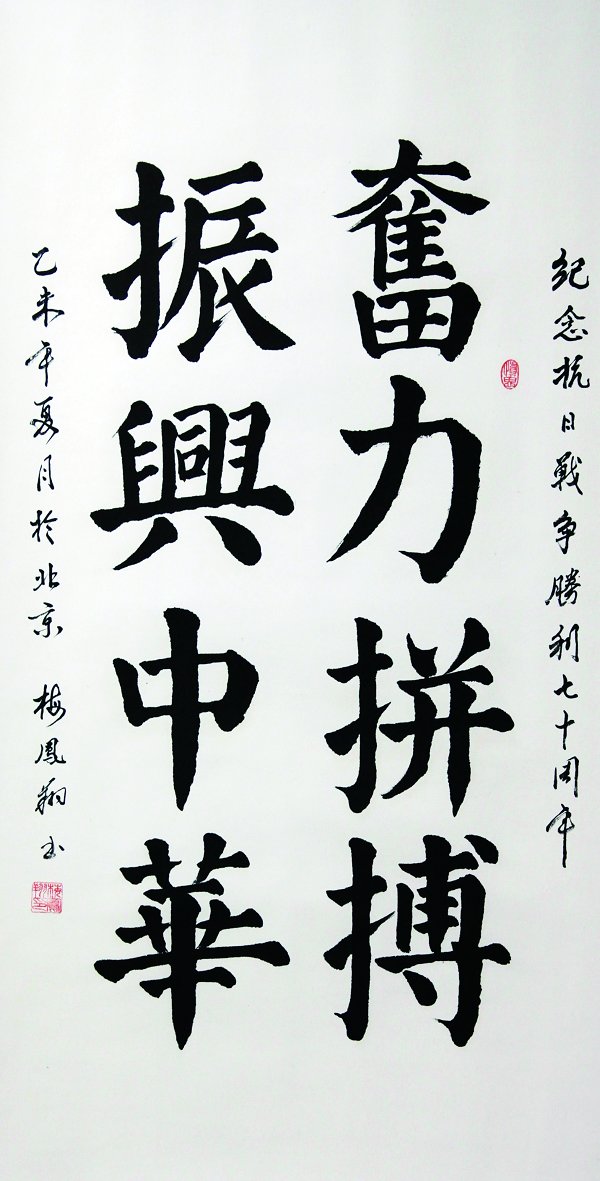 紀念抗日戰争勝利七十周年
奮力拼搏
振興中華
乙未年夏月於北京 梅鳳翔书